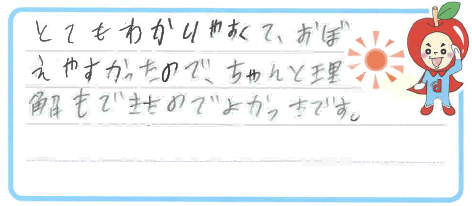 とてもわかりやすくて、おぼ
えやすかったので、ちゃんと理
解もできたのでよかったです。
d